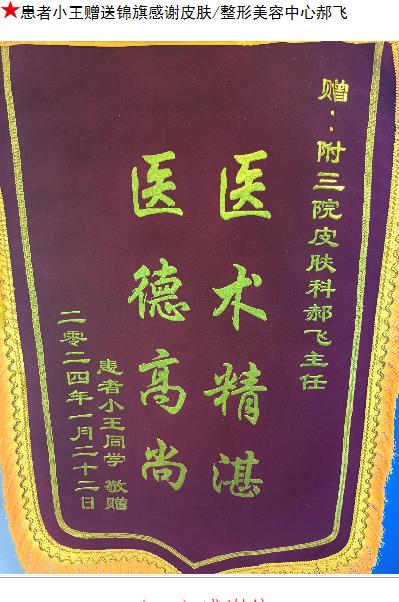 ★患者小王赠送锦旗感谢皮肤/整形美容中心郝飞
赠：附三院皮肤科郝飞主任
医术精湛
医德高尚
患者小王同学 敬赠
二零二四年一月二十二日